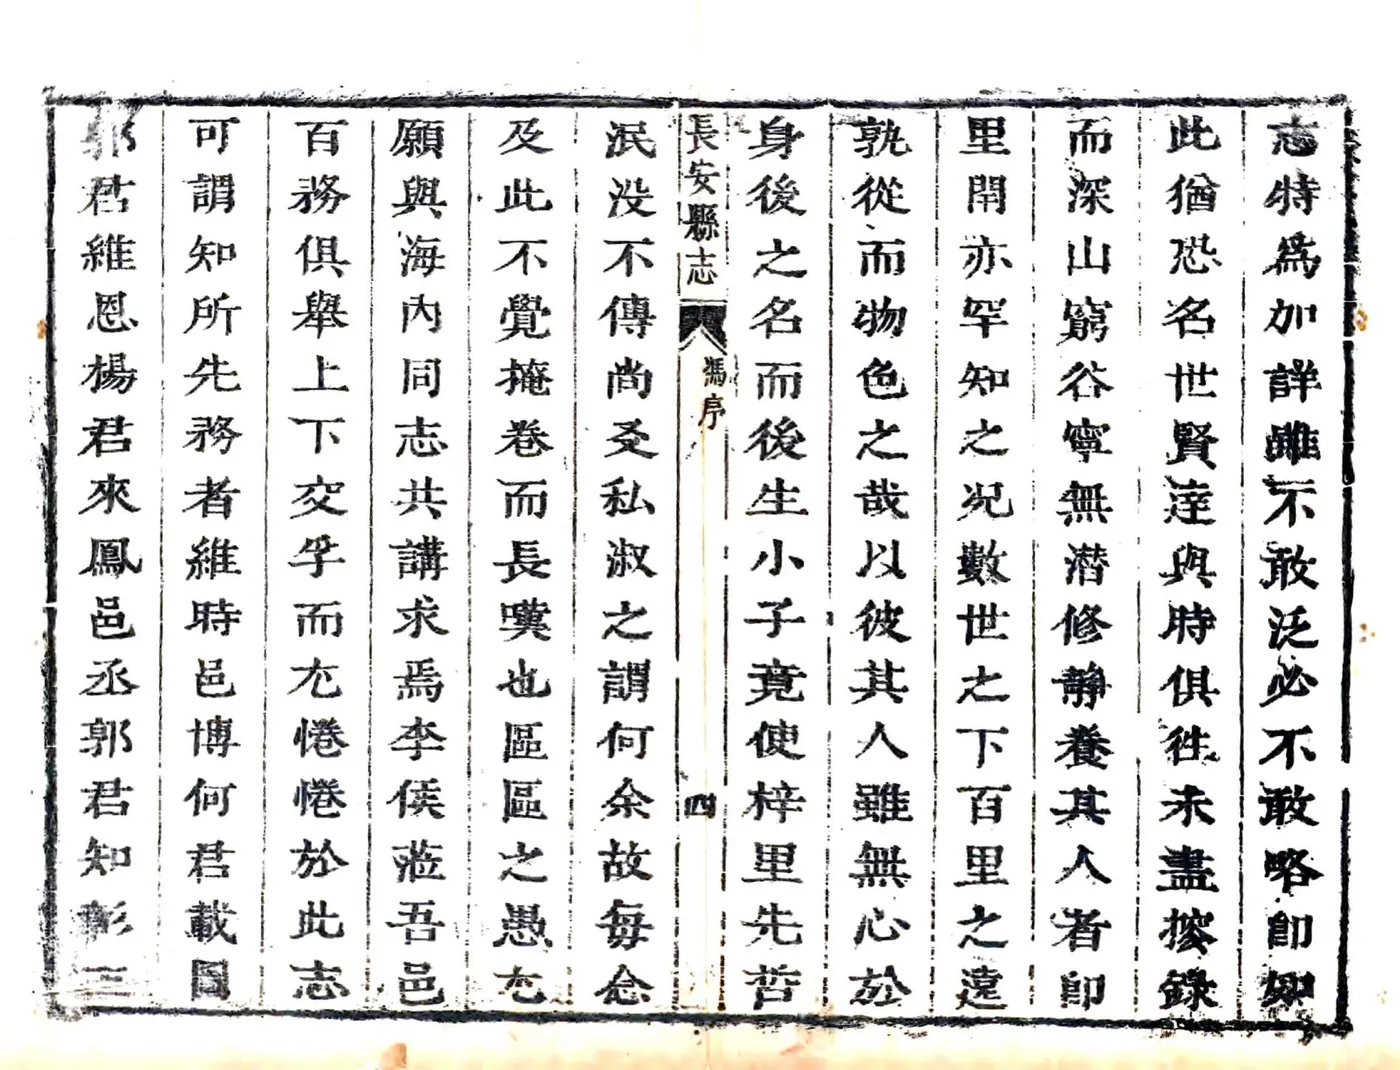 志特為加詳雖不敢泛必不敢略卽如
此猶恐名世賢達與時俱徃未盡搜錄
而深山窮谷寧無潛修靜養其人者卽
里閈亦罕知之况數世之下百里之遠
孰從而物色之哉以彼其人雖無心於
身後之名而後生小子竟使梓里先哲
長安縣志 馮序 四
泯没不傳尚友私淑之謂何余故每念
及此不覺掩卷而長嘆也區區之愚尤
願與海內同志共講求焉李侯蒞吾邑
百務俱舉上下交孚而尤惓惓於此志
可謂知所先務者維時邑博何君載圖
郭君維恩楊君來鳳邑丞郭君知彰三